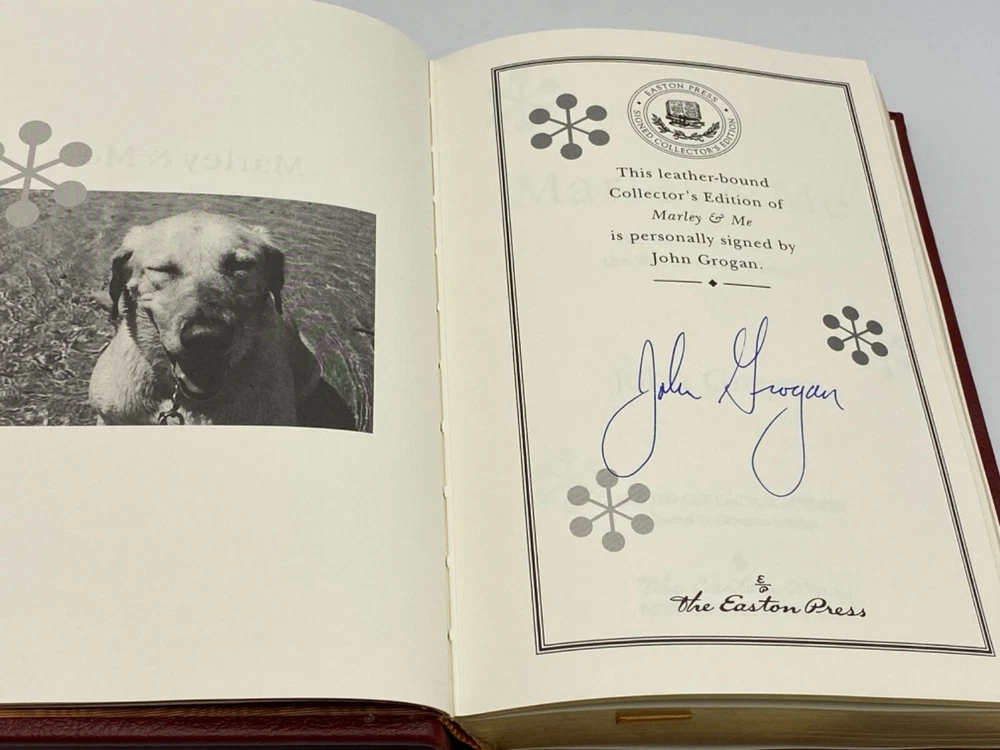 EASTON PRESS
SIGNED COLLECTOR'S EDITION
This leather-bound
Collector's Edition of
Marley & Me
is personally signed by
John Grogan.
John Grogan
E/P
The Easton Press
Marley & M